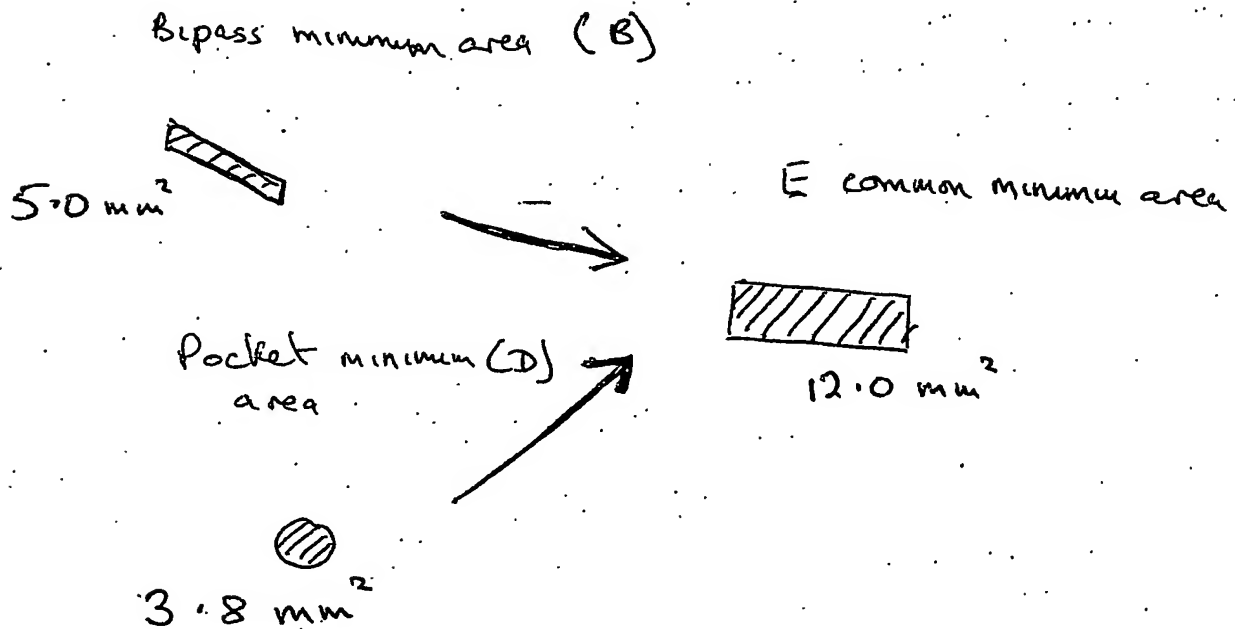 Bipass minimum area (B)
5.0 mm²
E common minimum area
Pocket minimum (D)
area
12.0 mm²
3.8 mm²